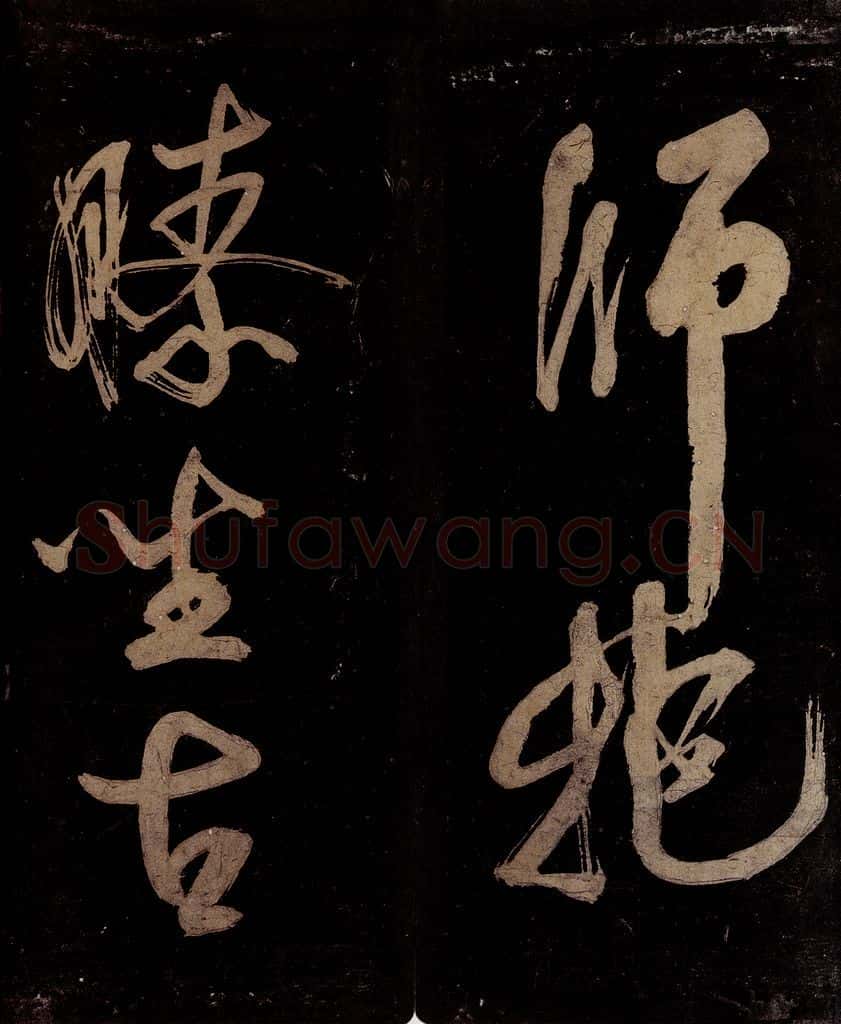 師抱
膝坐古
Shufawang.CN